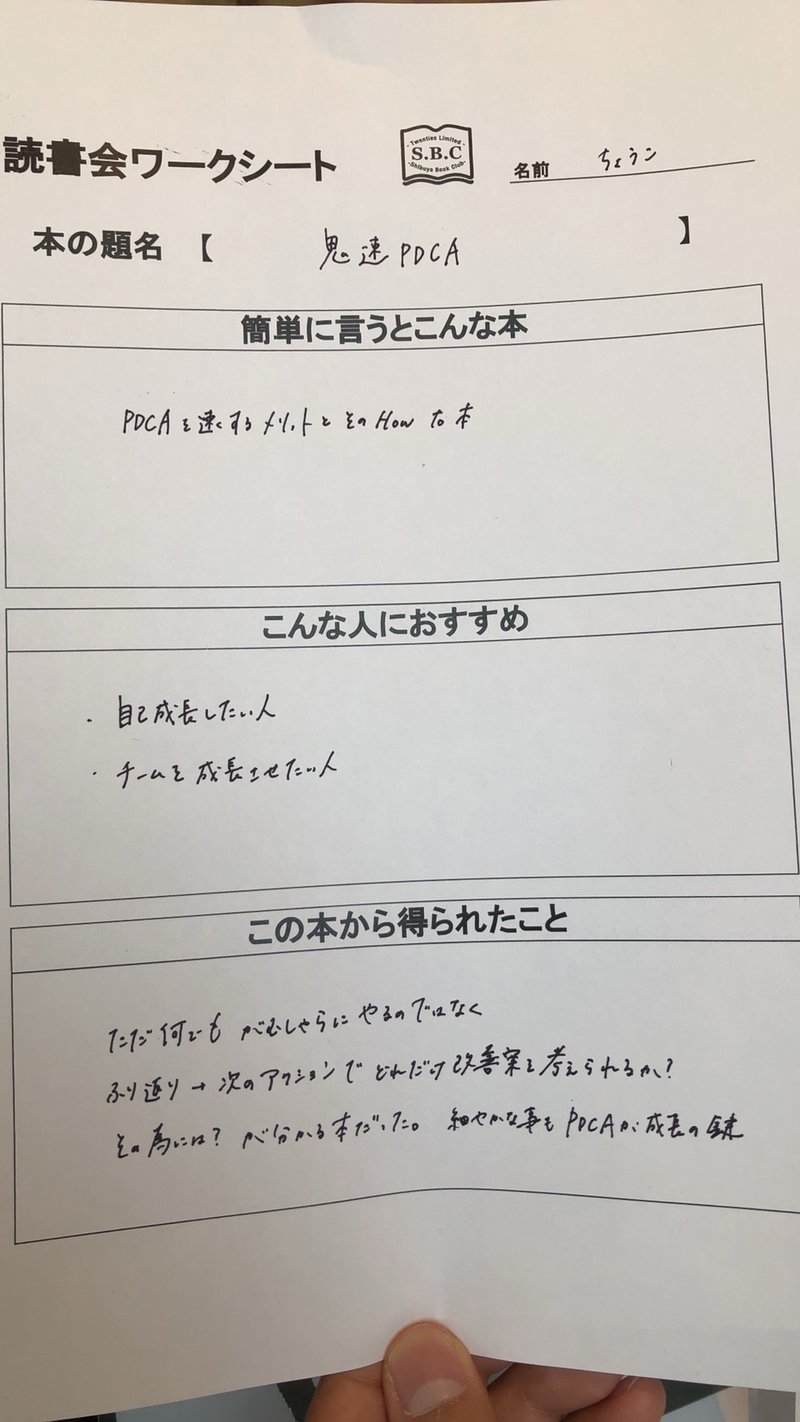 読書会ワークシート
-Twenties Limited-
S.B.C
-Shibuya Book Club-
名前 ちょうこ
本の題名 【 鬼速PDCA 】
簡単に言うとこんな本
PDCAを速くするメリットとそのHow to 本
こんな人におすすめ
・自己成長したい人
・チームを成長させたい人
この本から得られたこと
ただ何でも がむしゃらに やるのではなく
ふり返り→次のアクションで どれだけ改善案を考えられるか?
その為には? が分かる本だった。 細やかな事も PDCAが成長の鍵